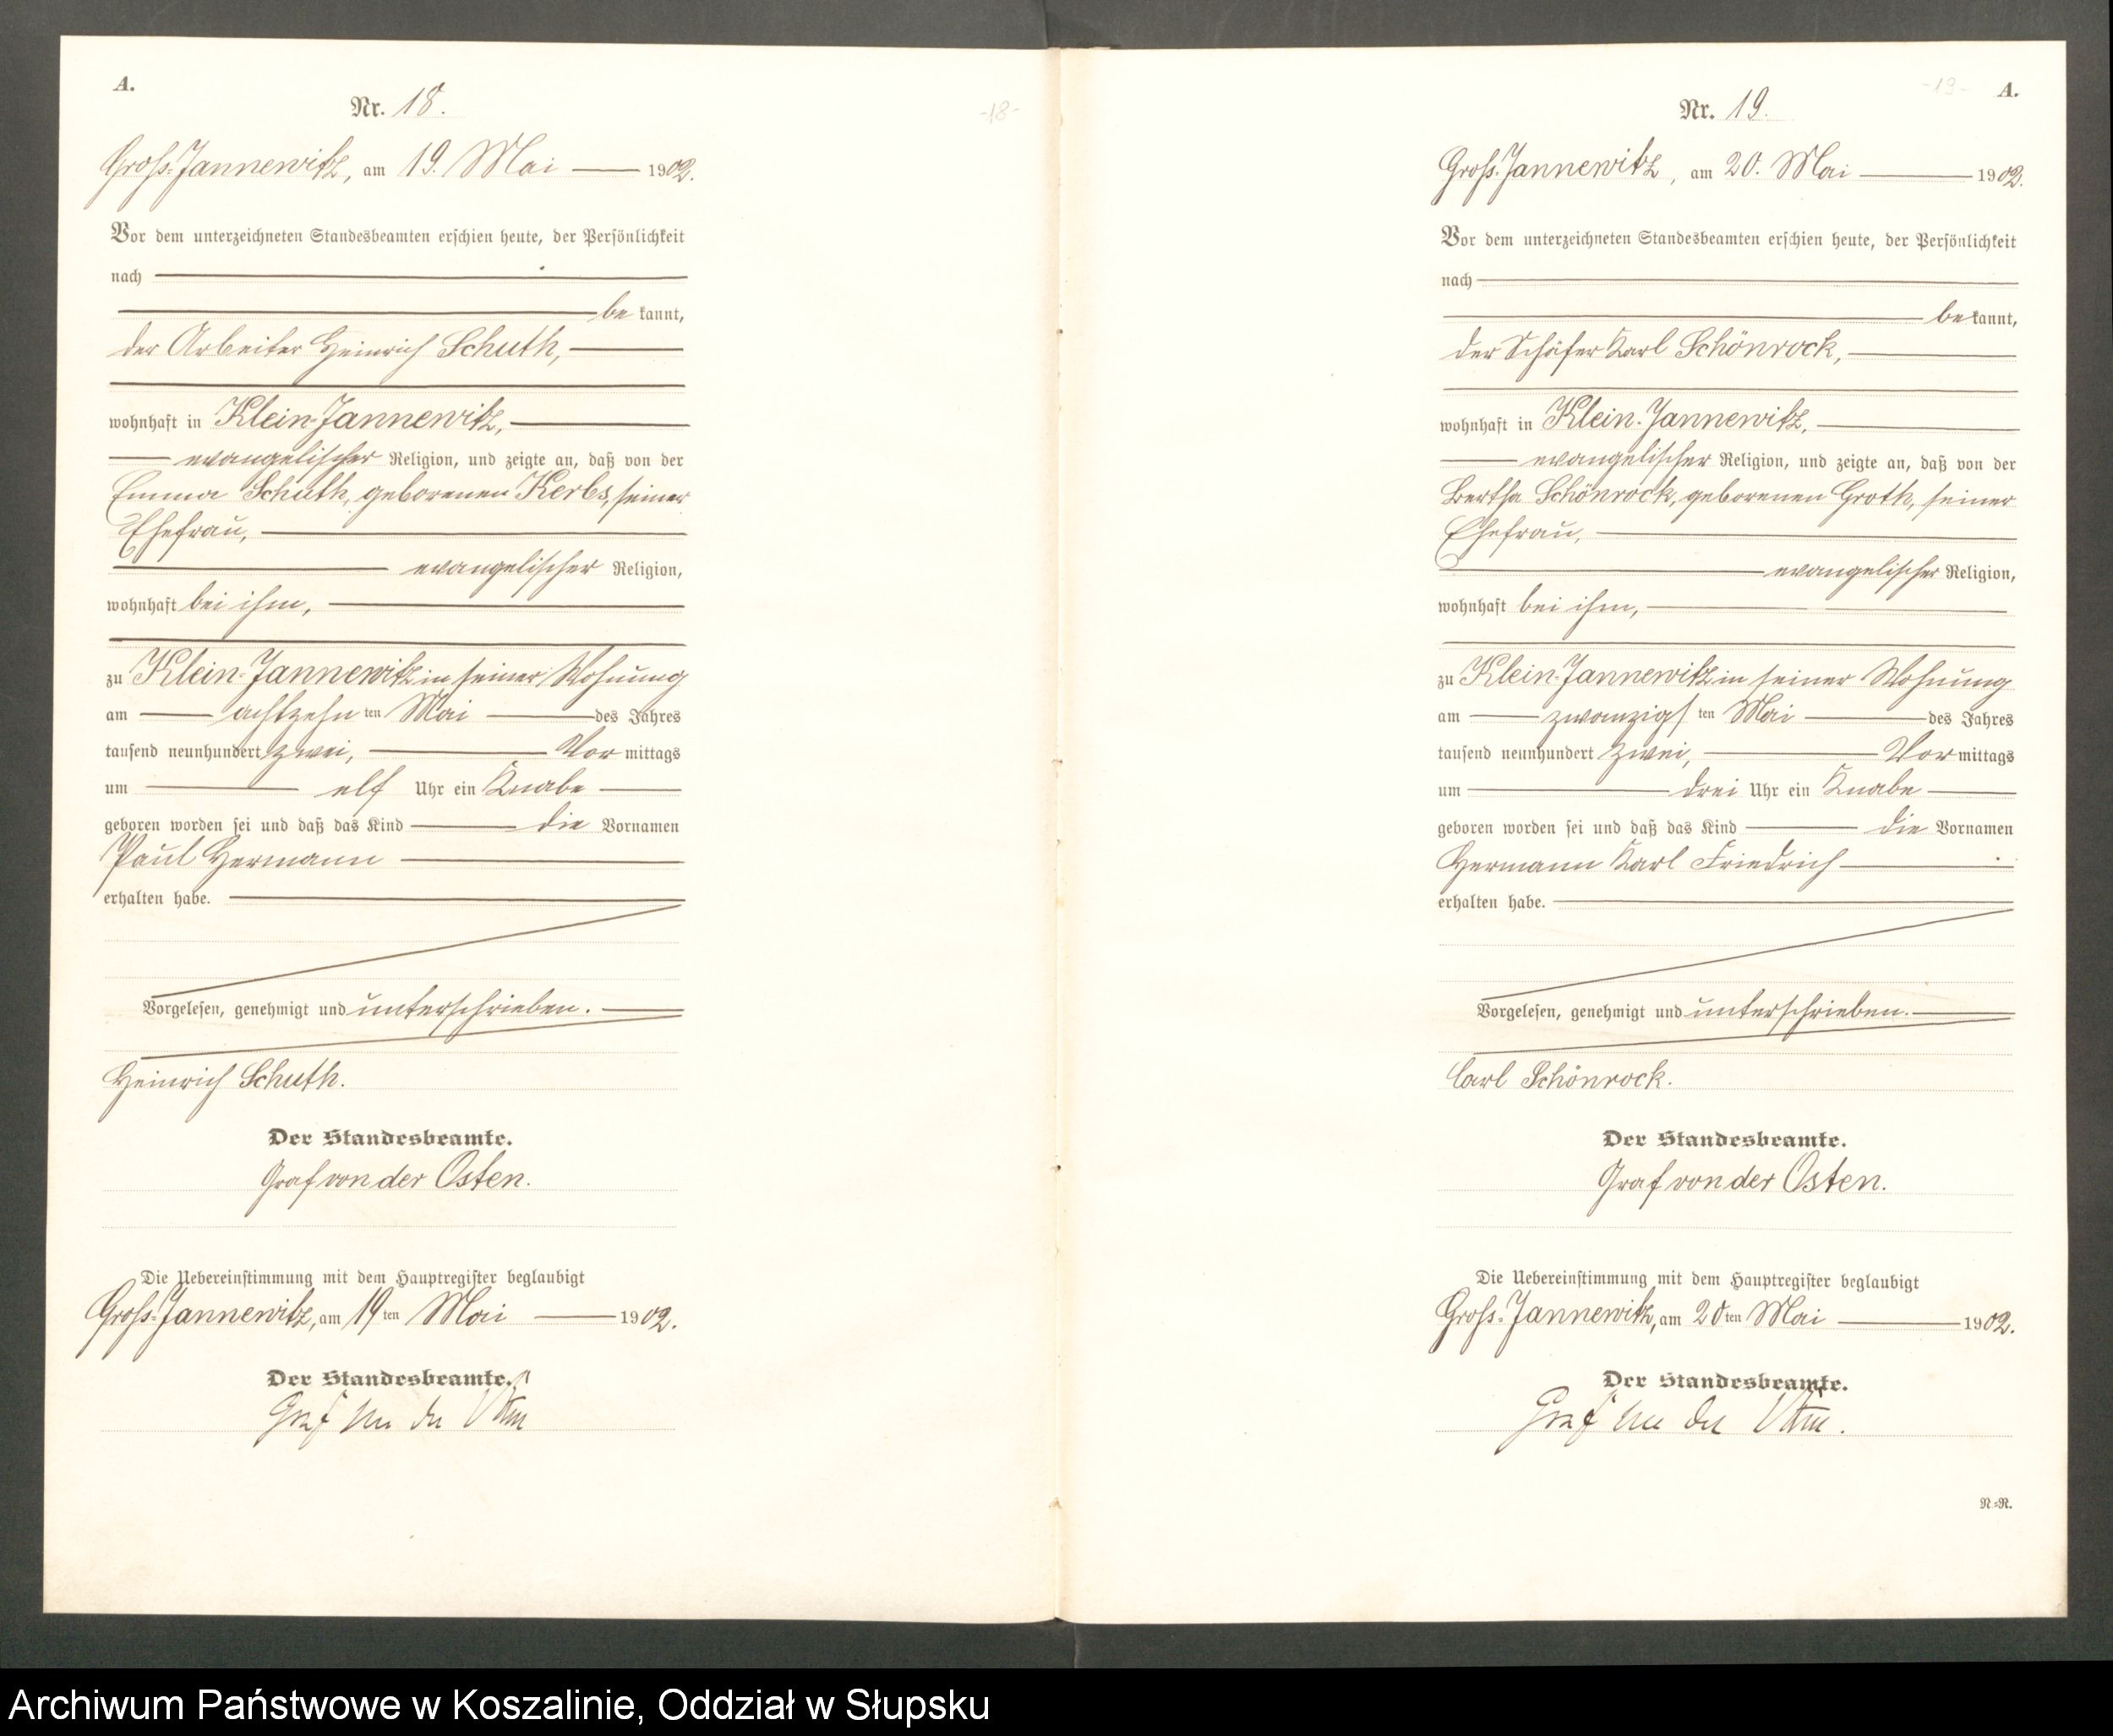 A.
Nr. 18.
-18-
Gross-Jannewitz, am 19. Mai 1902.
Vor dem unterzeichneten Standesbeamten erschien heute, der Persönlichkeit
nach
be kannt,
der Arbeiter Heinrich Schuth,
wohnhaft in Klein-Jannewitz,
evangelischer Religion, und zeigte an, daß von der
Emma Schuth, geborenen Kerbs, seiner
Ehefrau,
evangelischer Religion,
wohnhaft bei ihm,
zu Klein-Jannewitz in seiner Wohnung
am achtzehn ten Mai des Jahres
tausend neunhundert zwei, Vor mittags
um elf Uhr ein Knabe
geboren worden sei und daß das Kind die Vornamen
Paul Hermann
erhalten habe.
Vorgelesen, genehmigt und unterschrieben.
Heinrich Schuth.
Der Standesbeamte.
Graf von der Osten.
Die Uebereinstimmung mit dem Hauptregister beglaubigt
Gross-Jannewitz, am 19ten Mai 1902.
Der Standesbeamte.
Graf von der Osten
-19-
A.
Nr. 19.
Gross-Jannewitz, am 20. Mai 1902.
Vor dem unterzeichneten Standesbeamten erschien heute, der Persönlichkeit
nach
be kannt,
der Schäfer Karl Schönrock,
wohnhaft in Klein-Jannewitz,
evangelischer Religion, und zeigte an, daß von der
Bertha Schönrock, geborenen Groth, seiner
Ehefrau,
evangelischer Religion,
wohnhaft bei ihm,
zu Klein-Jannewitz in seiner Wohnung
am zwanzigs ten Mai des Jahres
tausend neunhundert zwei, Vor mittags
um drei Uhr ein Knabe
geboren worden sei und daß das Kind die Vornamen
Hermann Karl Friedrich
erhalten habe.
Vorgelesen, genehmigt und unterschrieben.
Carl Schönrock.
Der Standesbeamte.
Graf von der Osten.
Die Uebereinstimmung mit dem Hauptregister beglaubigt
Gross-Jannewitz, am 20ten Mai 1902.
Der Standesbeamte.
Graf von der Osten.
N.=N.
Archiwum Państwowe w Koszalinie, Oddział w Słupsku